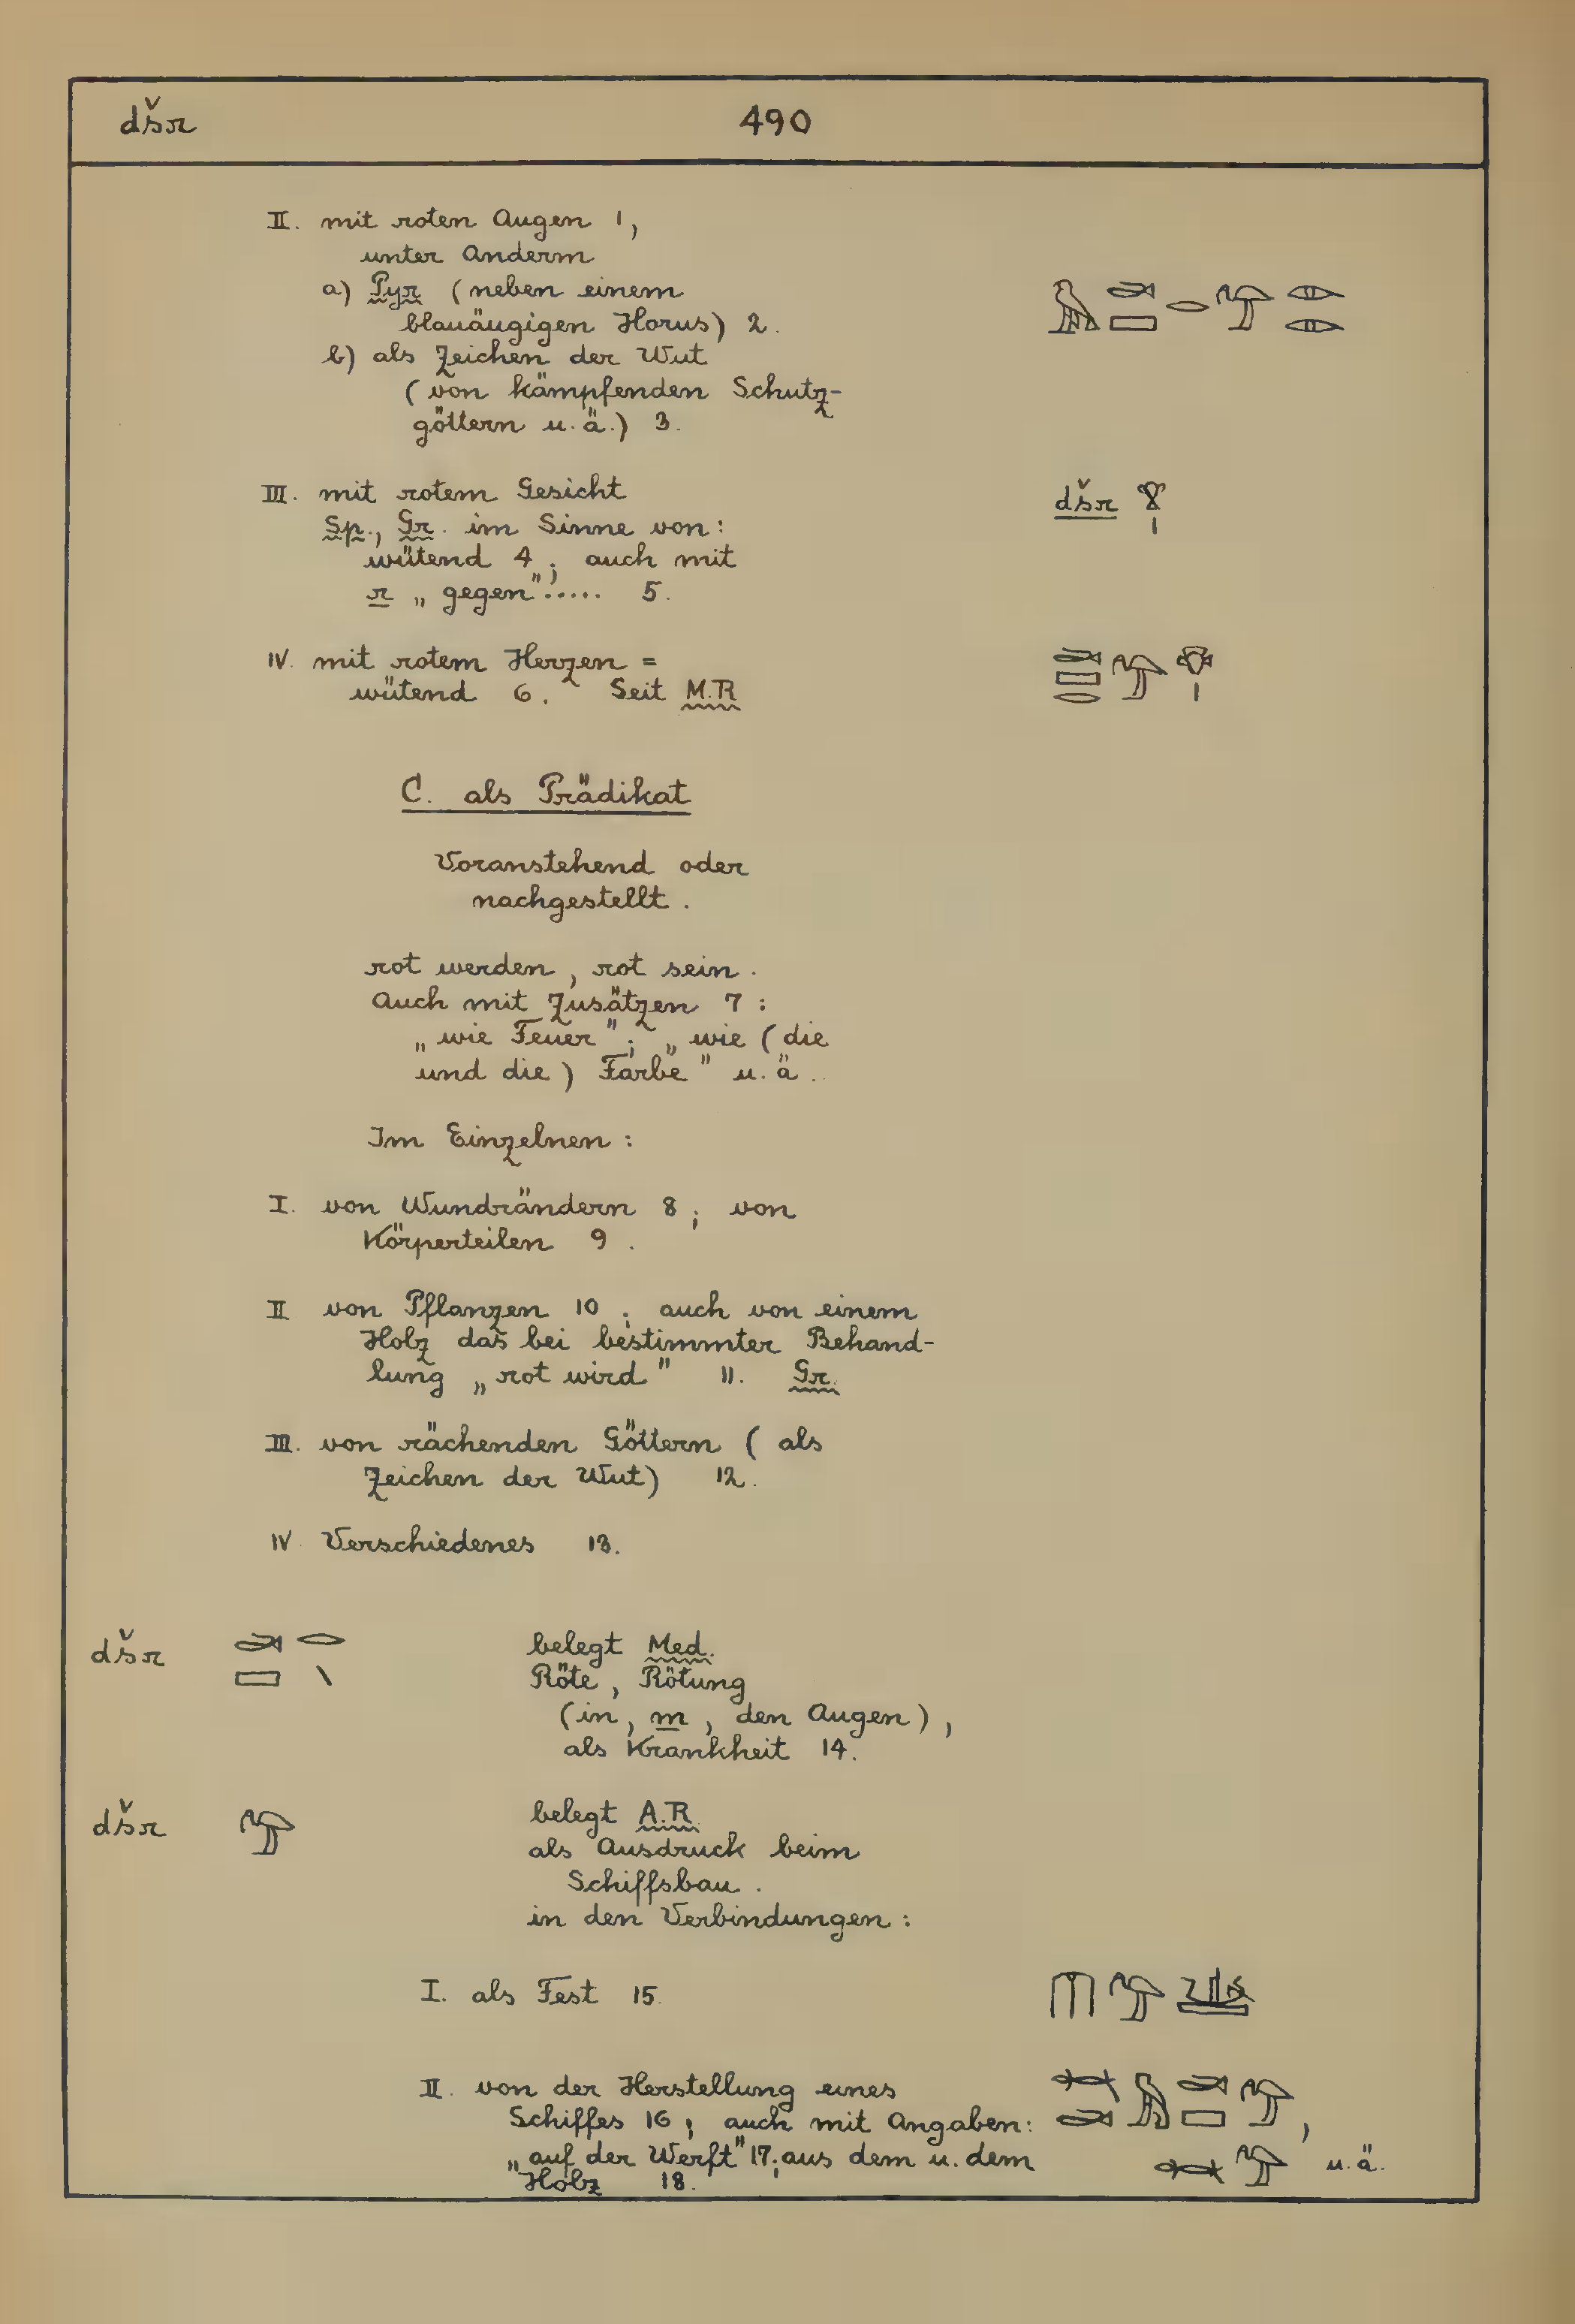 dšr 490
II. mit roten Augen 1,
unter Anderm
a) Pyr (neben einem
blauäugigen Horus) 2.
b) als Zeichen der Wut
(von kämpfenden Schutz-
göttern u. ä.) 3.
III. mit rotem Gesicht dšr
Sp., Gr. im Sinne von:
wütend 4; auch mit
r „gegen"..... 5.
IV. mit rotem Herzen =
wütend 6. Seit M.R
C. als Prädikat
Voranstehend oder
nachgestellt.
rot werden, rot sein.
Auch mit Zusätzen 7:
„wie Feuer"; „wie (die
und die) Farbe" u. ä.
Im Einzelnen:
I. von Wundrändern 8; von
Körperteilen 9.
II von Pflanzen 10; auch von einem
Holz das bei bestimmter Behand-
lung „rot wird" 11. Gr.
III. von rächenden Göttern (als
Zeichen der Wut) 12.
IV Verschiedenes 13.
dšr belegt Med.
Röte, Rötung
(in, m, den Augen),
als Krankheit 14.
dšr belegt A.R
als Ausdruck beim
Schiffsbau.
in den Verbindungen:
I. als Fest 15.
II. von der Herstellung eines
Schiffes 16; auch mit Angaben: ,
„auf der Werft" 17; aus dem u. dem u. ä.
Holz 18.